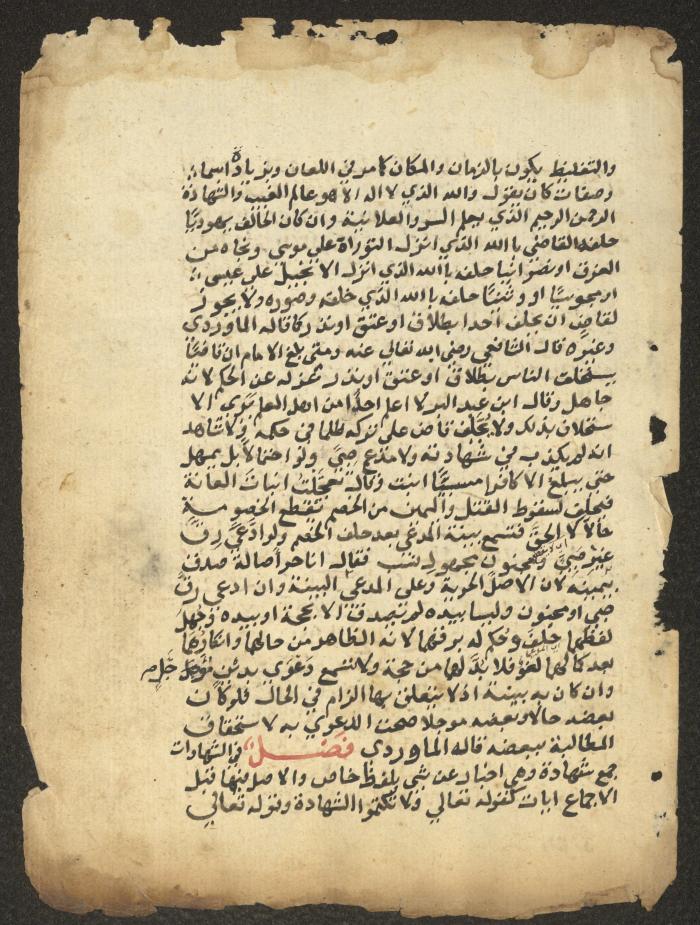 والتغليظ يكون بالزمان والمكان كما مر في اللعان وبزيادة اسماء
وصفات كان يقول والله الذي لا اله الا هو عالم الغيب والشهادة
الرحمن الرحيم الذي يعلم السر والعلانية وان كان الحالف يهوديا
حلفه القاضي بالله الذي انزل التوراة علي موسي ونجاه من
الغرق او نصرانيا حلفه بالله الذي انزل الانجيل علي عيسي
او مجوسيا او وثنيا حلفه بالله الذي خلقه وصوره ولا يجوز
لقاض ان يحلف احدا بطلاق او عتق او نذر كما قاله الماوردي
وغيره قال الشافعي رضي الله تعالي عنه ومتي بلغ الامام ان قاضيا
يستحلف الناس بطلاق او عتق او نذر عزله عن الحكم لانه
جاهل وقال ابن عبد البر لا اعلم احدا من اهل العلم يري الا
ستحلاف بذلك ولا يحلف قاض علي تركه ظلما في حكمه ولا شاهد
انه لم يكذب في شهادته ولا مدع صبي ولو احتمالا بل يمهل
حتي يبلغ الا كافرا مسبيا انبت وقال تعجلت انبات العانة
فيحلف لسقوط القتل واليمين من الخصم تقطع الخصومة
حالا لا الحق فتسمع بينة المدعي بعد حلف الخصم ولو ادعي رق
غير صبي ومجنون مجهول نسب فقال انا حر اصالة صدق
بيمينه لان الاصل الحرية وعلي المدعي البينة وان ادعي رق
صبي او مجنون وليسا بيده لم يصدق الا بحجة او بيده وجهل
لقطهما حلف وحكم له برقهما لانه الظاهر من حالهما وانكارهما
بعد كمالهما لغو فلا بد لهما من حجة ولا تسمع دعوي بدين مؤجل
وان كان به بينة اذ لا يتعلق بها الزام في الحال فلو كان
بعضه حالا وبعضه موجلا صحت الدعوي به لاستحقاق
المطالبة ببعضه قاله الماوردي فصل في الشهادات
جمع شهادة وهي اخبار عن شي بلفظ خاص والاصل فيها قبل
الاجماع ايات كقوله تعالي ولا تكتموا الشهادة وقوله تعالي